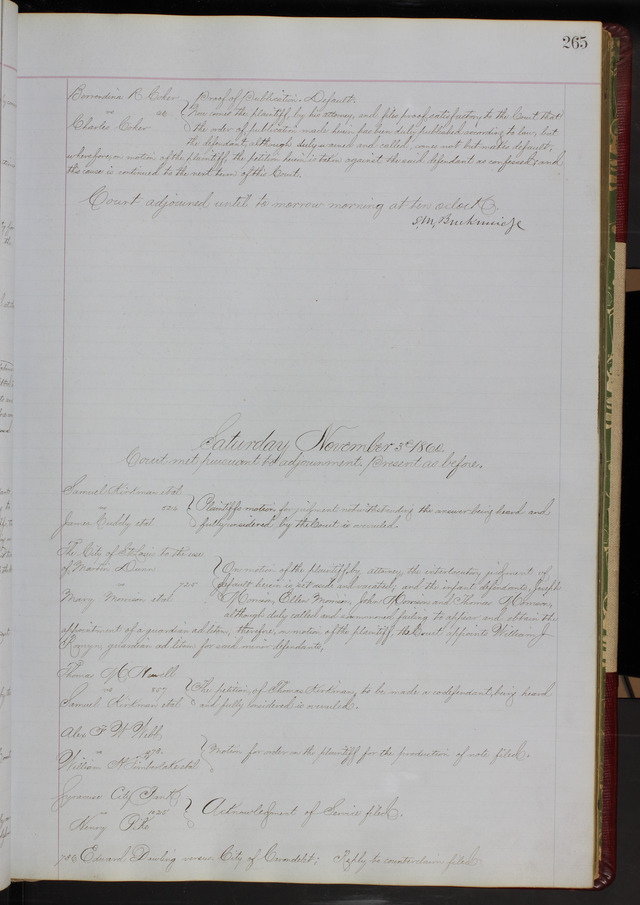 265
Berrendina R. Coker } Proof of Publication. Default.
vs 46 } Now comes the plaintiff, by his attorney, and files proof satisfactory to the Court that
Charles Coker } the order of publication made herein has been duly published according to law, but
the defendant, although duly warned and called, comes not but makes default,
wherefore, on motion of the plaintiff the petition herein is taken against the said defendant as confessed; and
this cause is continued to the next term of this Court.
Court adjourned until to morrow morning at ten oclock.
Saturday November 3d 1860.
Court met pursuant to adjournment. Present as before.
Samuel Kirkman etal
vs 524 } Plaintiffs motion for judgment notwithstanding the answer being heard and
James etal } fully considered by the Court is overruled.
The City of St Louis to the use
of Martin Dunn } On motion of the plaintiff by attorney, the interlocutory judgment of
vs 725 } default herein is set aside and vacated, and the infant defendants, Joseph
Mary Morrison etal } Morrison, Ellen Morrison, John Morrison and Thomas Morrison,
although duly called and summoned failing to appear and obtain the
appointment of a guardian ad litem, therefore, on motion of the plaintiff, the Court appoints William J
guardian ad litem for said minor defendants,
Thomas Howell
vs 557 } The petition, of Thomas Kirkman, to be made a codefendant, being heard
Samuel Kirkman etal } and fully considered is overruled.
Alex F W Webb
vs 478 } Motion for order on the plaintiff for the production of note filed.
William H Timberlake etal
City
vs 1025 } Acknowledgment of Service filed.
Henry Pike
786 Edward Dowling versus City of Carondelet; Reply to counterclaim filed